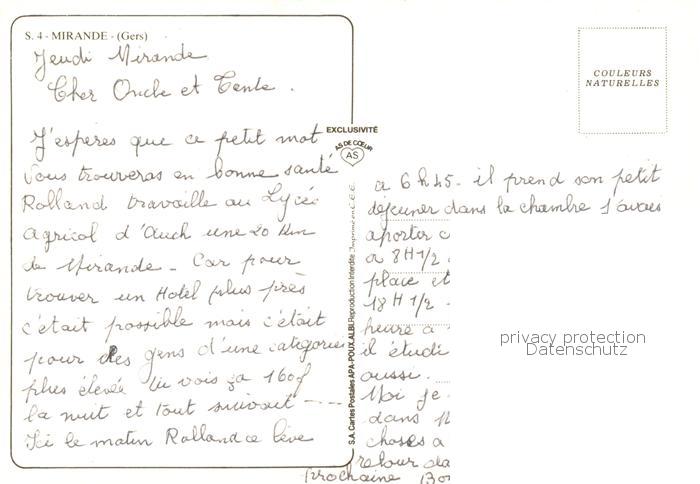 S. 4 - MIRANDE - (Gers)
Jeudi Mirande
Cher Oncle et Tente.
J'espères que ce petit mot
vous trouveras en bonne santé
Rolland travaille au Lycée
agricol d'Auch une 20 km
de Mirande - Car pour
trouver un Hotel plus près
c'était possible mais c'était
pour des gens d'une categorie
plus élevée tu vois ça 160f
la nuit et tout suivait ----
Ici le matin Rolland ce lève
EXCLUSIVITÉ
AS DE CŒUR
AS
S.A. Cartes Postales APA-POUX, ALBI Reproduction Interdite Imprimé en C.E.E.
COULEURS
NATURELLES
a 6h45 - il prend son petit
déjeuner dans la chambre j'avais
aporter c
a 8H1/2
place et
18H1/2
heure a
il étudi
aussi.
Moi je
dans
choses a
retour da
prochaine Bo
privacy protection
Datenschutz